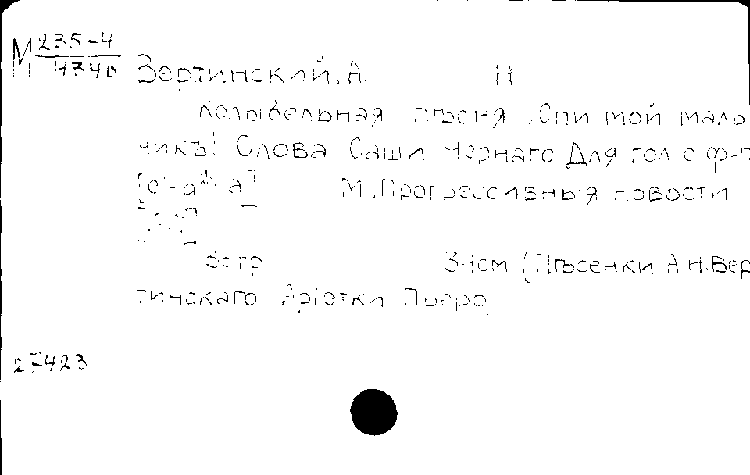 М 235-4
434
Вертинский, А. Н
Колыбельная пѣсня. Спи мой маль
чикъ! Слова Саши Чернаго Для гол с ф-п
М. Прогрессивныя новости
3стр (Пѣсенки А Н. Вер
тинскаго Арiэтки Пьеро
27423